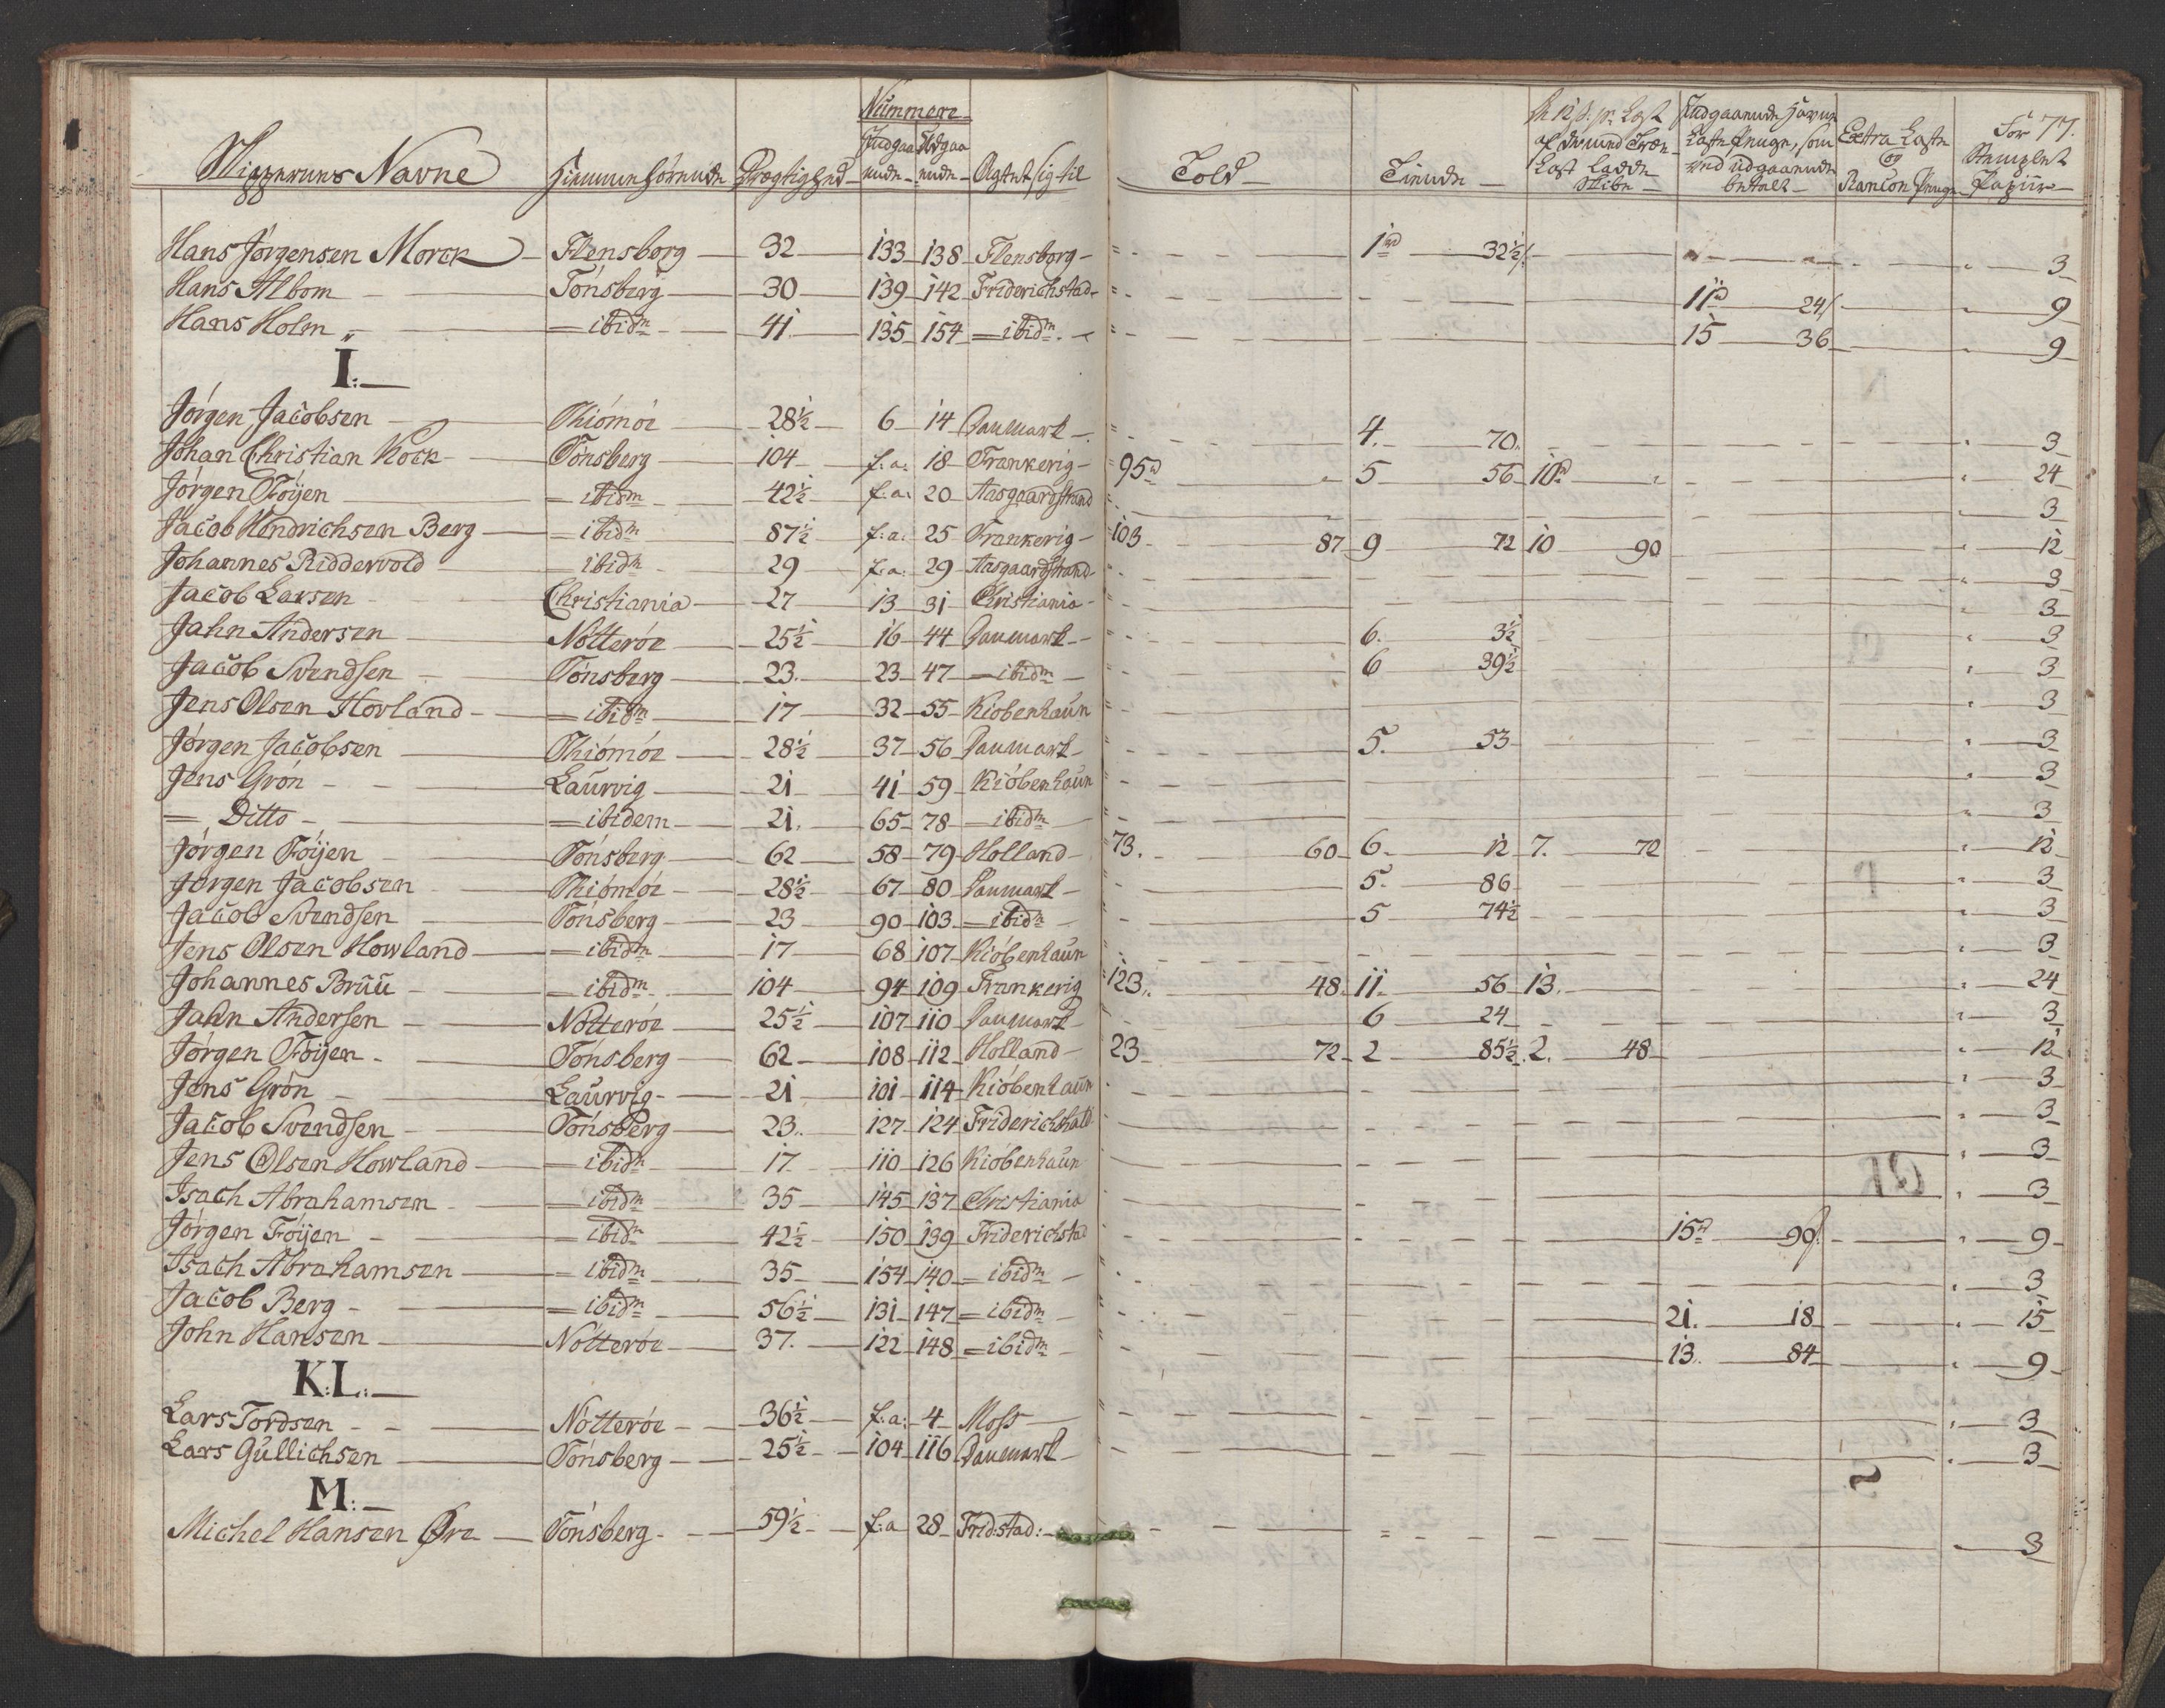 Skippernes Navne Hiemmehørende Drægtighed Nummere Indgaaende Udgaaende Agtet sig til Told Tiende á 12 s: pr Læst af Træ Last Ladde Skibe Indgaaende Havne Læste Penge, som ved udgaaende betalt Extra Læste og Rancon Penge For Stemplet Papiir 77.
Hans Jørgensen Morck Flensborg 32 133 138 Flensborg 1rd 32½ 3
Hans Albom Tönsberg 30 139 142 Friderichstad 11rd 24 9
Hans Holm ibidm 41 135 154 ibidm 15 36 9
I:
Jörgen Jacobsen Thiömöe 28½ 6 14 Danmark 4. 70. 3
Johan Christian Kock Tönsberg 104 f:a: 18 Frankerig 95rd 5 56 10rd 24
Jörgen Föijen ibidm 42½ f:a: 20 Aasgaardstrand 3
Jacob Hendrichsen Berg ibidm 87½ f:a: 25 Frankerig 103 87 9 72 10 90 12
Johannes Riddervold ibidm 29 f:a: 29 Aasgaardstrand 3
Jacob Larsen Christiania 27 13 31 Christiania 3
Jahn Andersen Nötteröe 25½ 16 44 Danmark 6. 3½ 3
Jacob Svendsen Tönsberg 23. 23 47 ibidm 6 39½ 3
Jens Olsen Hovland ibidm 17 32 55 Kiöbenhaun 3
Jörgen Jacobsen Thiömöe 28½ 37 56 Danmark 5. 53 3
Jens Grön Laurvig 21 41 59 Kiöbenhaun 3
Ditto ibidem 21. 65 78 ibidm 3
Jörgen Föijen Tönsberg 62 58 79 Holland 73. 60 6. 12 7. 72 12
Jörgen Jacobsen Thiömöe 28½ 67 80 Danmark 5. 86 3
Jacob Svendsen Tönsberg 23 90 103 ibidm 5 74½ 3
Jens Olsen Howland ibidm 17 68 107 Kiöbenhaun 3
Johannes Bruu ibidm 104 94 109 Frankerig 123. 48. 11. 56 13. 24
Jahn Andersen Nötteröe 25½ 107 110 Danmark 6 24 3
Jörgen Föijen Tönsberg 62 108 112 Holland 23 72 2 85½ 2. 48 12
Jens Grön Laurvig 21 101 114 Kiöbenhaun 3
Jacob Svendsen Tönsberg 23. 127 124 Friderichhald 3
Jens Olsen Howland ibidm 17. 110 126 Kiöbenhaun 3
Isach Abrahamsen ibidm 35 145 137 Christiania 3
Jörgen Föijen ibidm 42½ 150 139 Friderichstad 15rd 90 9
Isach Abrahamsen ibidm 35 154 140 ibidm 3
Jacob Berg ibidm 56½ 131 147 ibidm 21. 18 15
John Hansen Nötteröe 37. 122 148 ibidm 13. 84 9
K:L:
Lars Tordsen Nötteröe 36½ f:a: 4 Moss 3
Lars Gullichsen Tönsberg 25½ 104 116 Danmark 3
M:
Michel Hansen Øre Tönsberg 59½ f:a 28 Fridstad: 3